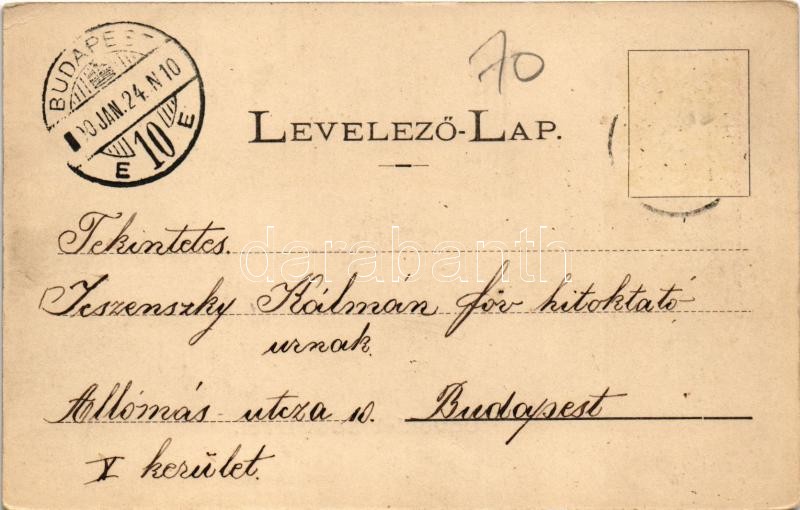 BUDAPEST
900 JAN. 24. N 10
10
E E
70
LEVELEZŐ-LAP.
Tekintetes
Jeszenszky Kálmán főv hitoktató
urnak
Állomás utcza 10. Budapest
X kerület.
darabanth